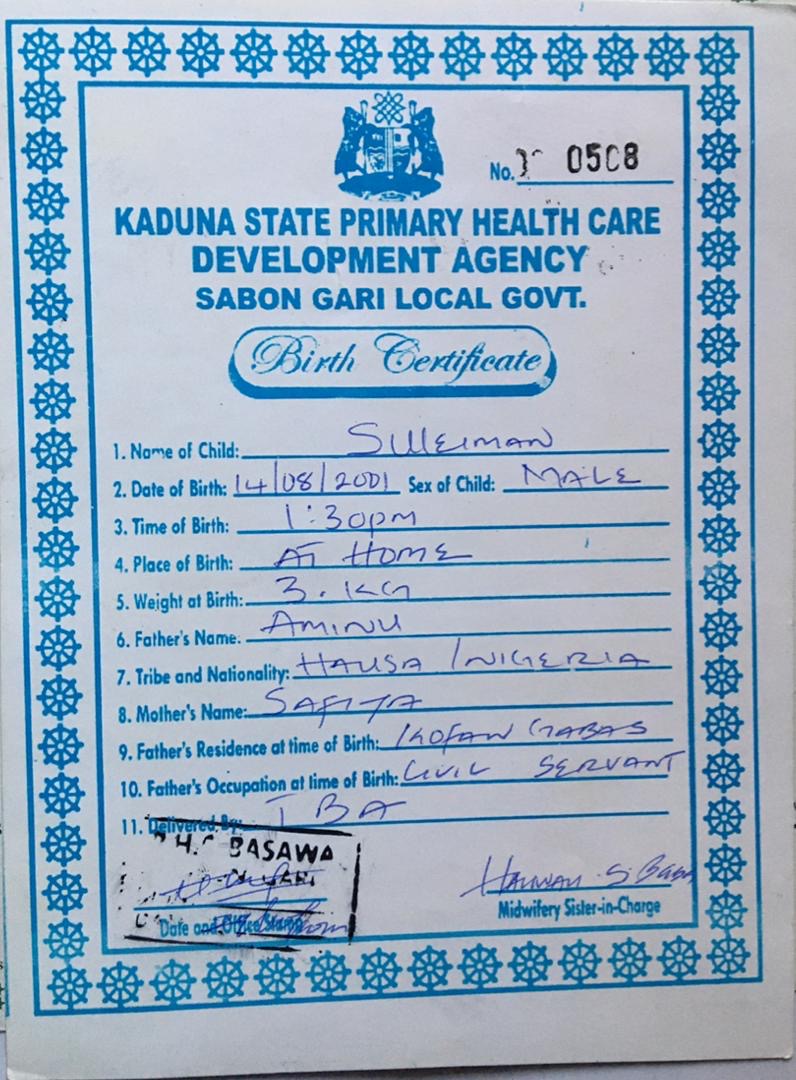 No. 0508
KADUNA STATE PRIMARY HEALTH CARE
DEVELOPMENT AGENCY
SABON GARI LOCAL GOVT.
Birth Certificate
1. Name of Child: SULEIMAN
2. Date of Birth: 14/08/2001 Sex of Child: MALE
3. Time of Birth: 1:30pm
4. Place of Birth: AT HOME
5. Weight at Birth: 3.KG
6. Father's Name: AMINU
7. Tribe and Nationality: HAUSA / NIGERIA
8. Mother's Name: SAFIYA
9. Father's Residence at time of Birth: KOFAN GABAS
10. Father's Occupation at time of Birth: CIVIL SERVANT
11. Delivered By: TBA
BASAWA
Date and Office Stamp
Hannah S
Midwifery Sister-in-Charge